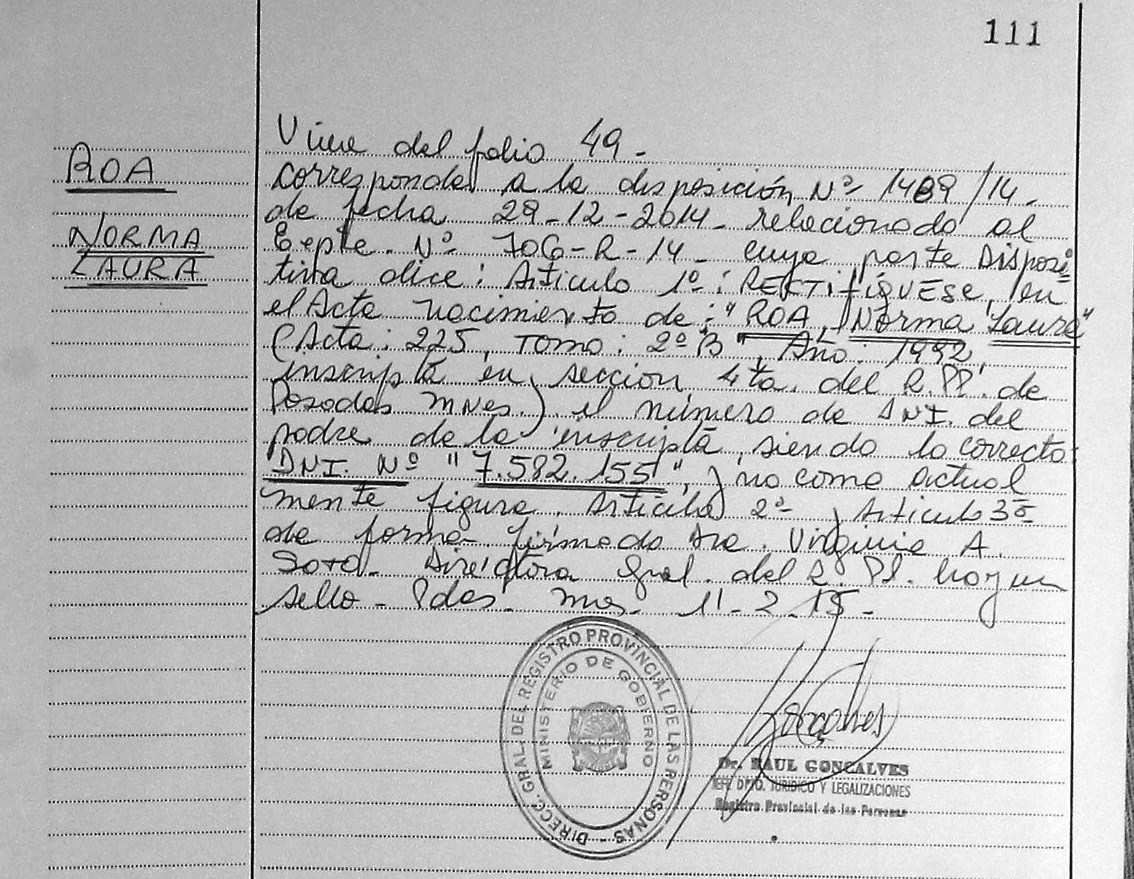 111
ROA
NORMA
LAURA
Viene del folio 49-
corresponde a la disposición Nº 1489/14-
de fecha 29-12-2014- relacionado al
Expte. Nº 706-R-14- cuya parte Disposi
tiva dice: Articulo 1º: RECTIFIQUESE, en
el Acta nacimiento de: "ROA, Norma Laura"
(Acta: 225, Tomo: 2º B", Año: 1992,
inscripta en sección 4ta. del R.PP. de
Posadas Mnes) el número de DNI. del
padre de la inscripta, siendo lo correcto:
DNI. Nº "7.582.155", y no como actual
mente figura. Articulo 2º y Articulo 3º
de forma- firmado Dra. Virginia A.
Soto- Directora Gral. del R.PP. hay un
sello- Pdas- Mns- 11-2-15-
DIRECC. GRAL. DEL REGISTRO PROVINCIAL DE LAS PERSONAS
MINISTERIO DE GOBIERNO
Goncalves
Dr. RAUL GONCALVES
JEFE DPTO. JURIDICO Y LEGALIZACIONES
Registro Provincial de las Personas